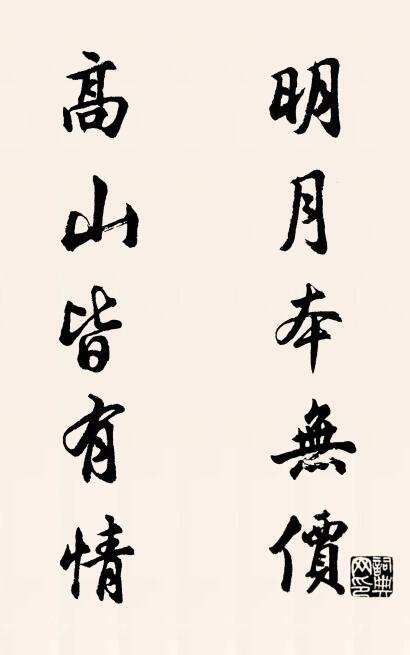 明月本無價
高山皆有情
詞典網印